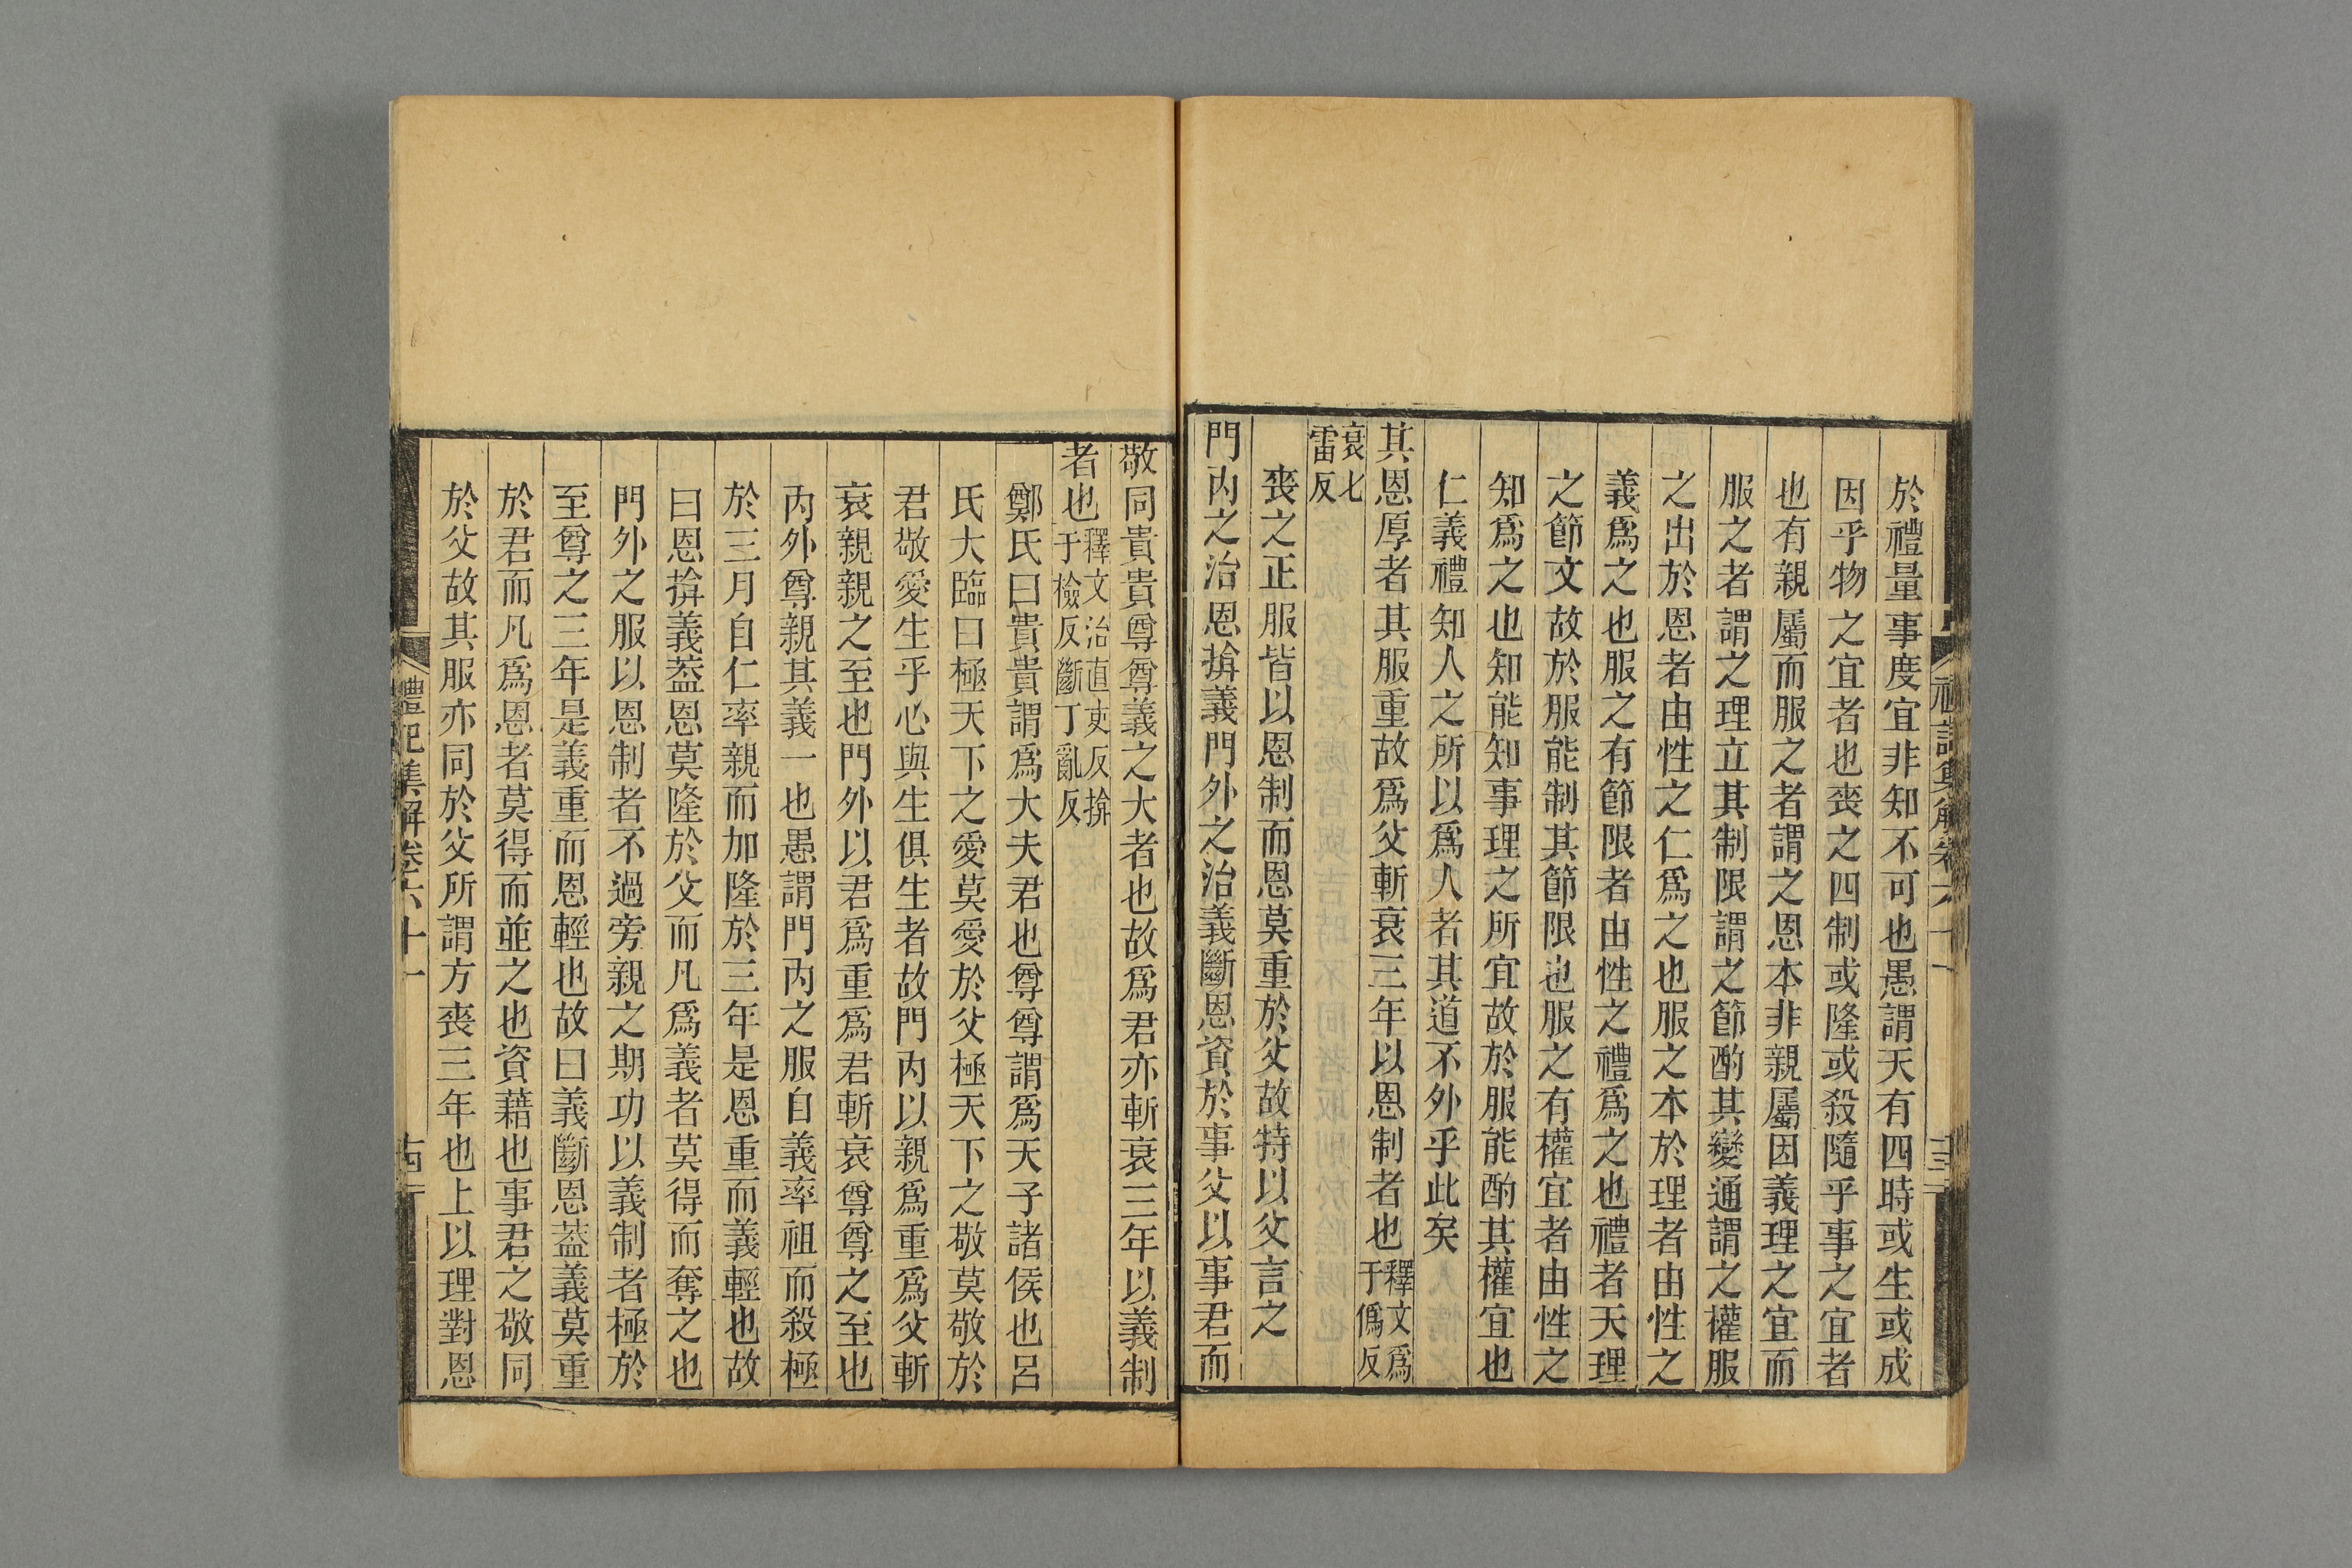 禮記集解卷六十一
十三
於禮量事度宜非知不可也愚謂天有四時或生或成
因乎物之宜者也喪之四制或隆或殺隨乎事之宜者
也有親屬而服之者謂之恩本非親屬因義理之宜而
服之者謂之理立其制限謂之節酌其變通謂之權服
之出於恩者由性之仁爲之也服之本於理者由性之
義爲之也服之有節限者由性之禮爲之也禮者天理
之節文故於服能制其節限也服之有權宜者由性之
知爲之也知能知事理之所宜故於服能酌其權宜也
仁義禮知人之所以爲人者其道不外乎此矣
其恩厚者其服重故爲父斬衰三年以恩制者也釋文爲于僞反
衰七雷反
喪之正服皆以恩制而恩莫重於父故特以父言之
門內之治恩揜義門外之治義斷恩資於事父以事君而
敬同貴貴尊尊義之大者也故爲君亦斬衰三年以義制
者也釋文治直吏反揜于檢反斷丁亂反
鄭氏曰貴貴謂爲大夫君也尊尊謂爲天子諸侯也呂
氏大臨曰極天下之愛莫愛於父極天下之敬莫敬於
君敬愛生乎心與生俱生者故門內以親爲重爲父斬
衰親親之至也門外以君爲重爲君斬衰尊尊之至也
內外尊親其義一也愚謂門內之服自義率祖而殺極
於三月自仁率親而加隆於三年是恩重而義輕也故
曰恩揜義葢恩莫隆於父而凡爲義者莫得而奪之也
門外之服以恩制者不過旁親之期功以義制者極於
至尊之三年是義重而恩輕也故曰義斷恩葢義莫重
於君而凡爲恩者莫得而並之也資藉也事君之敬同
於父故其服亦同於父所謂方喪三年也上以理對恩
禮記集解卷六十一
十四